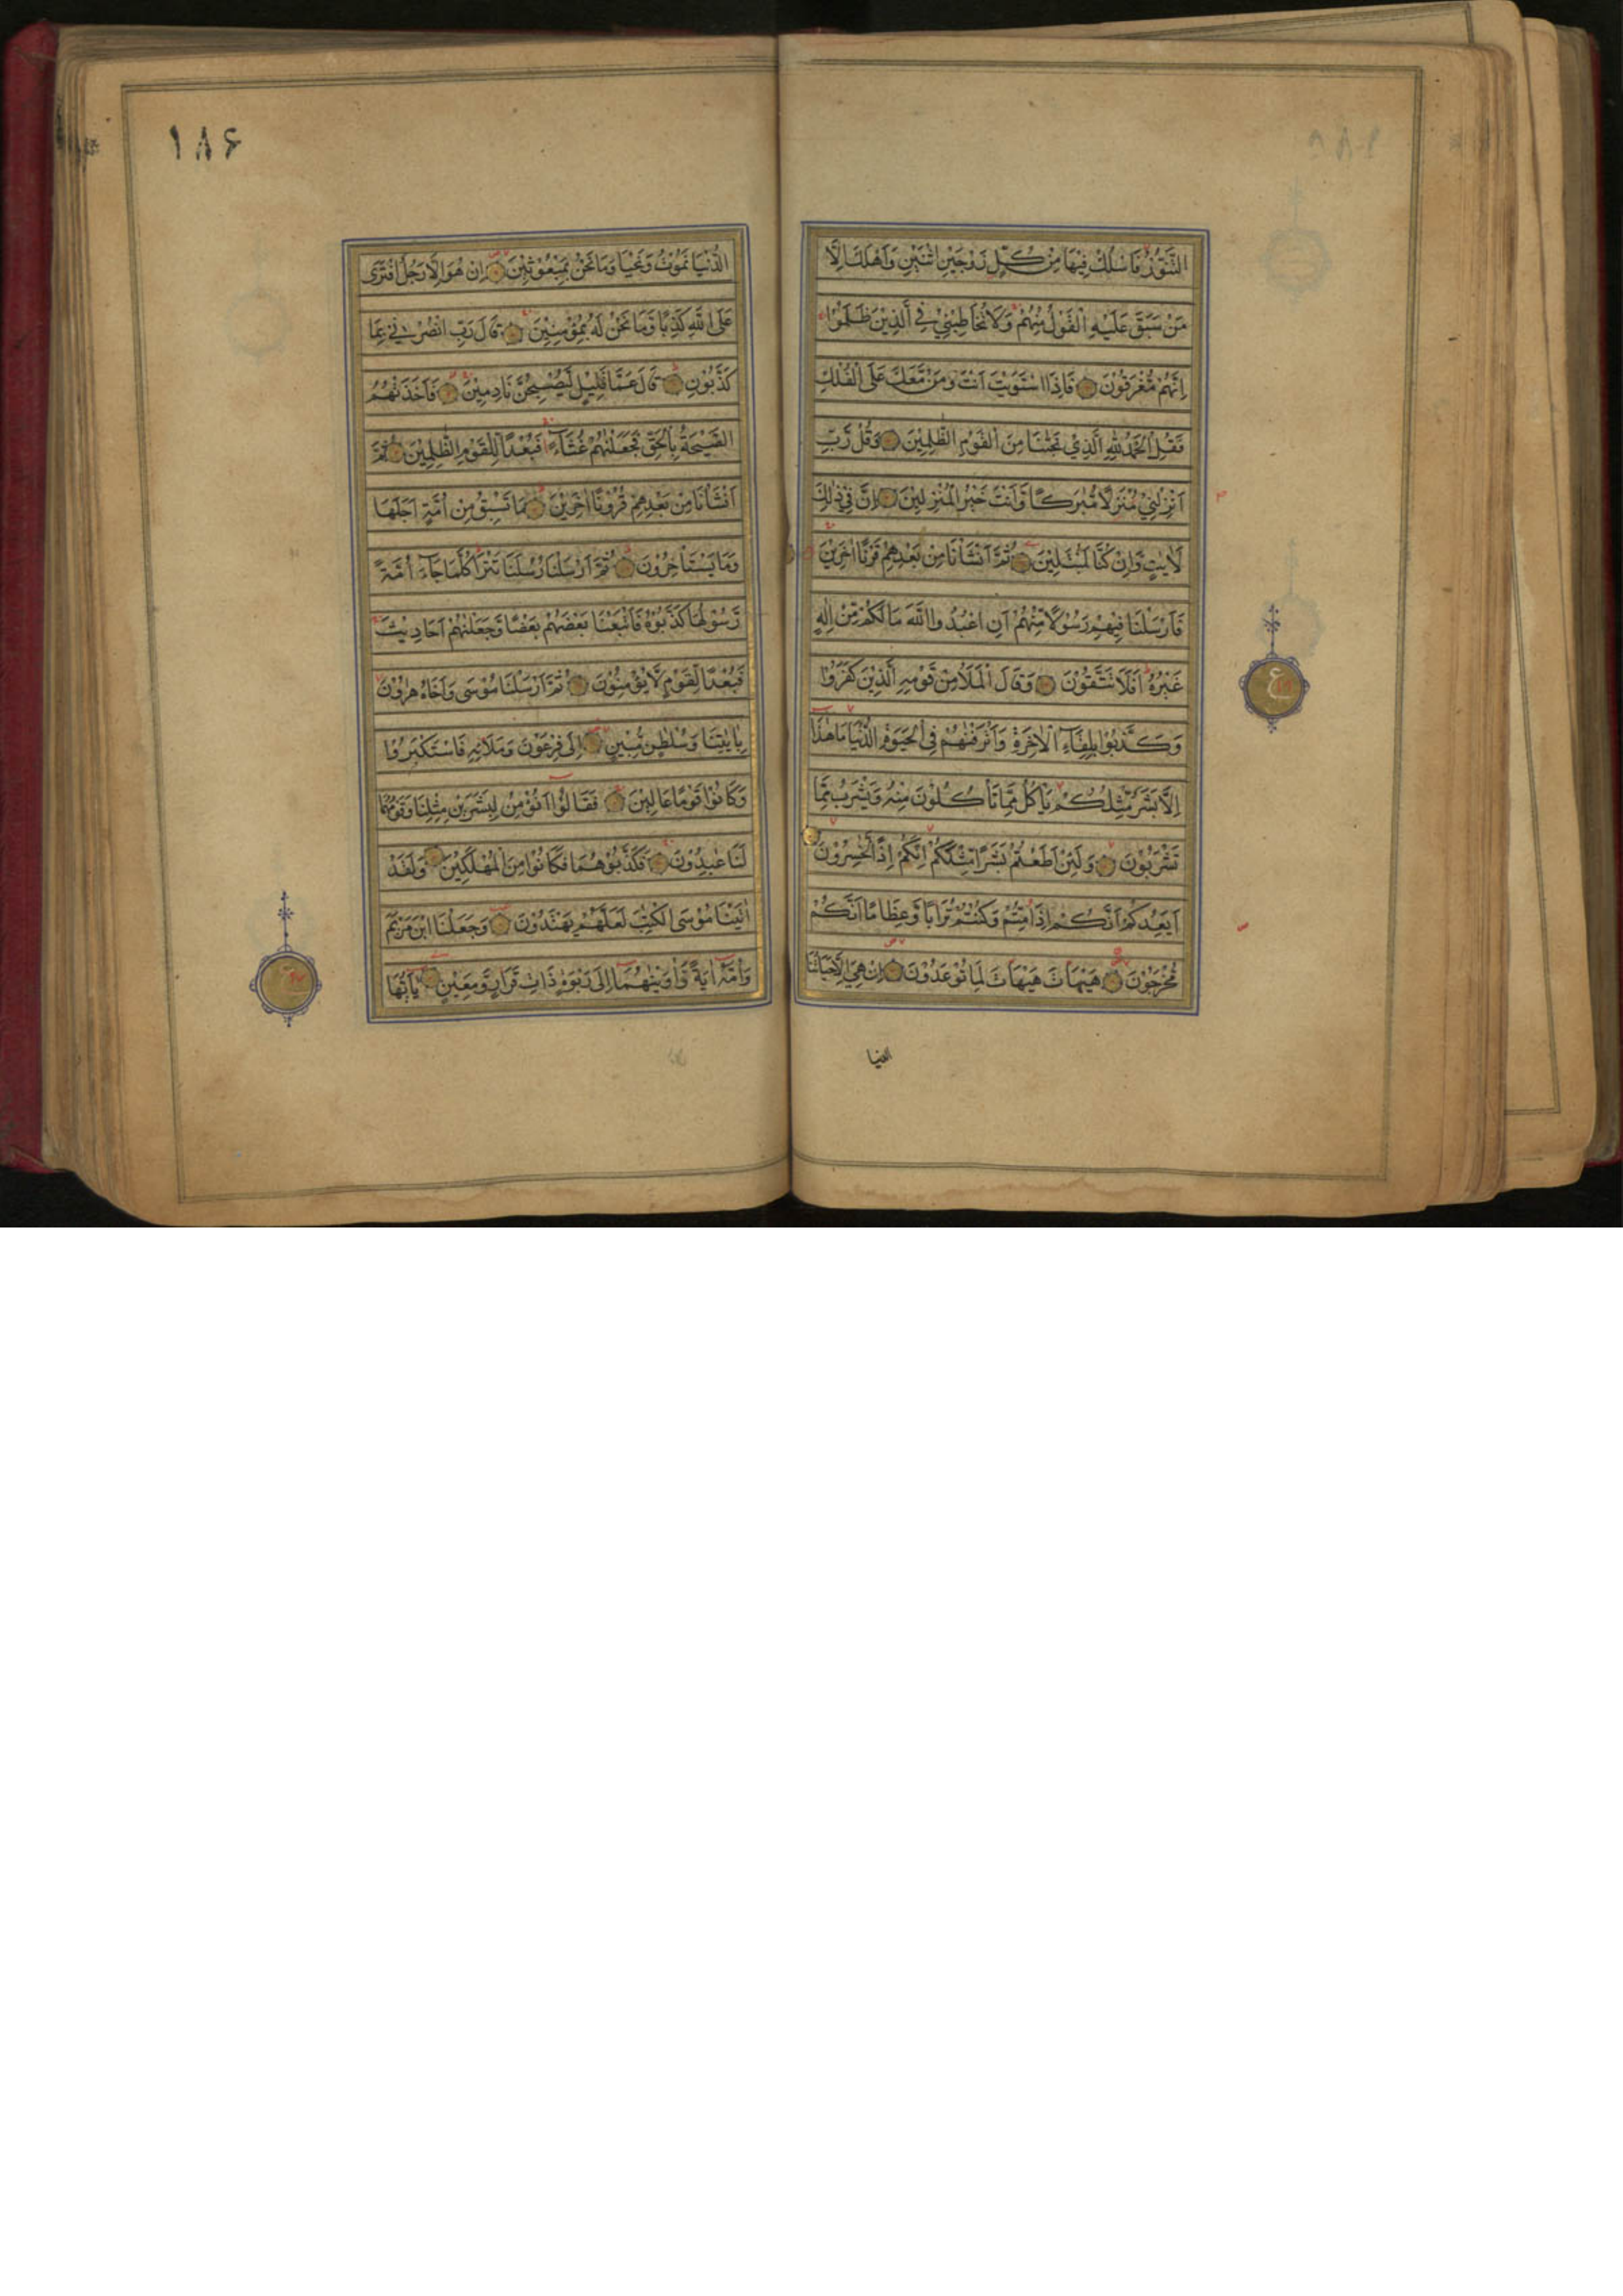 التَّنُّوْرُ فَاسْلُكْ فِيْهَا مِنْ كُلٍّ زَوْجَيْنِ اثْنَيْنِ وَاَهْلَكَ اِلَّا
مَنْ سَبَقَ عَلَيْهِ الْقَوْلُ مِنْهُمْ وَلَا تُخَاطِبْنِيْ فِي الَّذِيْنَ ظَلَمُوْا
اِنَّهُمْ مُّغْرَقُوْنَ فَاِذَا اسْتَوَيْتَ اَنْتَ وَمَنْ مَّعَكَ عَلَى الْفُلْكِ
فَقُلِ الْحَمْدُ لِلّٰهِ الَّذِيْ نَجّٰىنَا مِنَ الْقَوْمِ الظّٰلِمِيْنَ وَقُلْ رَّبِّ
اَنْزِلْنِيْ مُنْزَلًا مُّبٰرَكًا وَّاَنْتَ خَيْرُ الْمُنْزِلِيْنَ اِنَّ فِيْ ذٰلِكَ
لَاٰيٰتٍ وَّاِنْ كُنَّا لَمُبْتَلِيْنَ ثُمَّ اَنْشَأْنَا مِنْ بَعْدِهِمْ قَرْنًا اٰخَرِيْنَ
فَاَرْسَلْنَا فِيْهِمْ رَسُوْلًا مِّنْهُمْ اَنِ اعْبُدُوا اللّٰهَ مَا لَكُمْ مِّنْ اِلٰهٍ
غَيْرُهٗ اَفَلَا تَتَّقُوْنَ وَقَالَ الْمَلَاُ مِنْ قَوْمِهِ الَّذِيْنَ كَفَرُوْا
وَكَذَّبُوْا بِلِقَآءِ الْاٰخِرَةِ وَاَتْرَفْنٰهُمْ فِي الْحَيٰوةِ الدُّنْيَا مَا هٰذَا
اِلَّا بَشَرٌ مِّثْلُكُمْ يَأْكُلُ مِمَّا تَأْكُلُوْنَ مِنْهُ وَيَشْرَبُ مِمَّا
تَشْرَبُوْنَ وَلَئِنْ اَطَعْتُمْ بَشَرًا مِّثْلَكُمْ اِنَّكُمْ اِذًا لَّخٰسِرُوْنَ
اَيَعِدُكُمْ اَنَّكُمْ اِذَا مِتُّمْ وَكُنْتُمْ تُرَابًا وَّعِظَامًا اَنَّكُمْ
مُّخْرَجُوْنَ هَيْهَاتَ هَيْهَاتَ لِمَا تُوْعَدُوْنَ اِنْ هِيَ اِلَّا حَيَاتُنَا
الدنيا
ع
١٨۶
الدُّنْيَا نَمُوْتُ وَنَحْيَا وَمَا نَحْنُ بِمَبْعُوْثِيْنَ اِنْ هُوَ اِلَّا رَجُلٌ افْتَرٰى
عَلَى اللّٰهِ كَذِبًا وَّمَا نَحْنُ لَهٗ بِمُؤْمِنِيْنَ قَالَ رَبِّ انْصُرْنِيْ بِمَا
كَذَّبُوْنِ قَالَ عَمَّا قَلِيْلٍ لَّيُصْبِحُنَّ نَادِمِيْنَ فَاَخَذَتْهُمُ
الصَّيْحَةُ بِالْحَقِّ فَجَعَلْنٰهُمْ غُثَآءً فَبُعْدًا لِّلْقَوْمِ الظّٰلِمِيْنَ ثُمَّ
اَنْشَأْنَا مِنْ بَعْدِهِمْ قُرُوْنًا اٰخَرِيْنَ مَا تَسْبِقُ مِنْ اُمَّةٍ اَجَلَهَا
وَمَا يَسْتَأْخِرُوْنَ ثُمَّ اَرْسَلْنَا رُسُلَنَا تَتْرَا كُلَّمَا جَآءَ اُمَّةً
رَّسُوْلُهَا كَذَّبُوْهُ فَاَتْبَعْنَا بَعْضَهُمْ بَعْضًا وَّجَعَلْنٰهُمْ اَحَادِيْثَ
فَبُعْدًا لِّقَوْمٍ لَّا يُؤْمِنُوْنَ ثُمَّ اَرْسَلْنَا مُوْسٰى وَاَخَاهُ هٰرُوْنَ
بِاٰيٰتِنَا وَسُلْطٰنٍ مُّبِيْنٍ اِلٰى فِرْعَوْنَ وَمَلَائِهٖ فَاسْتَكْبَرُوْا
وَكَانُوْا قَوْمًا عَالِيْنَ فَقَالُوْا اَنُؤْمِنُ لِبَشَرَيْنِ مِثْلِنَا وَقَوْمُهُمَا
لَنَا عٰبِدُوْنَ فَكَذَّبُوْهُمَا فَكَانُوْا مِنَ الْمُهْلَكِيْنَ وَلَقَدْ
اٰتَيْنَا مُوْسَى الْكِتٰبَ لَعَلَّهُمْ يَهْتَدُوْنَ وَجَعَلْنَا ابْنَ مَرْيَمَ
وَاُمَّهٗ اٰيَةً وَّاٰوَيْنٰهُمَا اِلٰى رَبْوَةٍ ذَاتِ قَرَارٍ وَّمَعِيْنٍ يٰاَيُّهَا